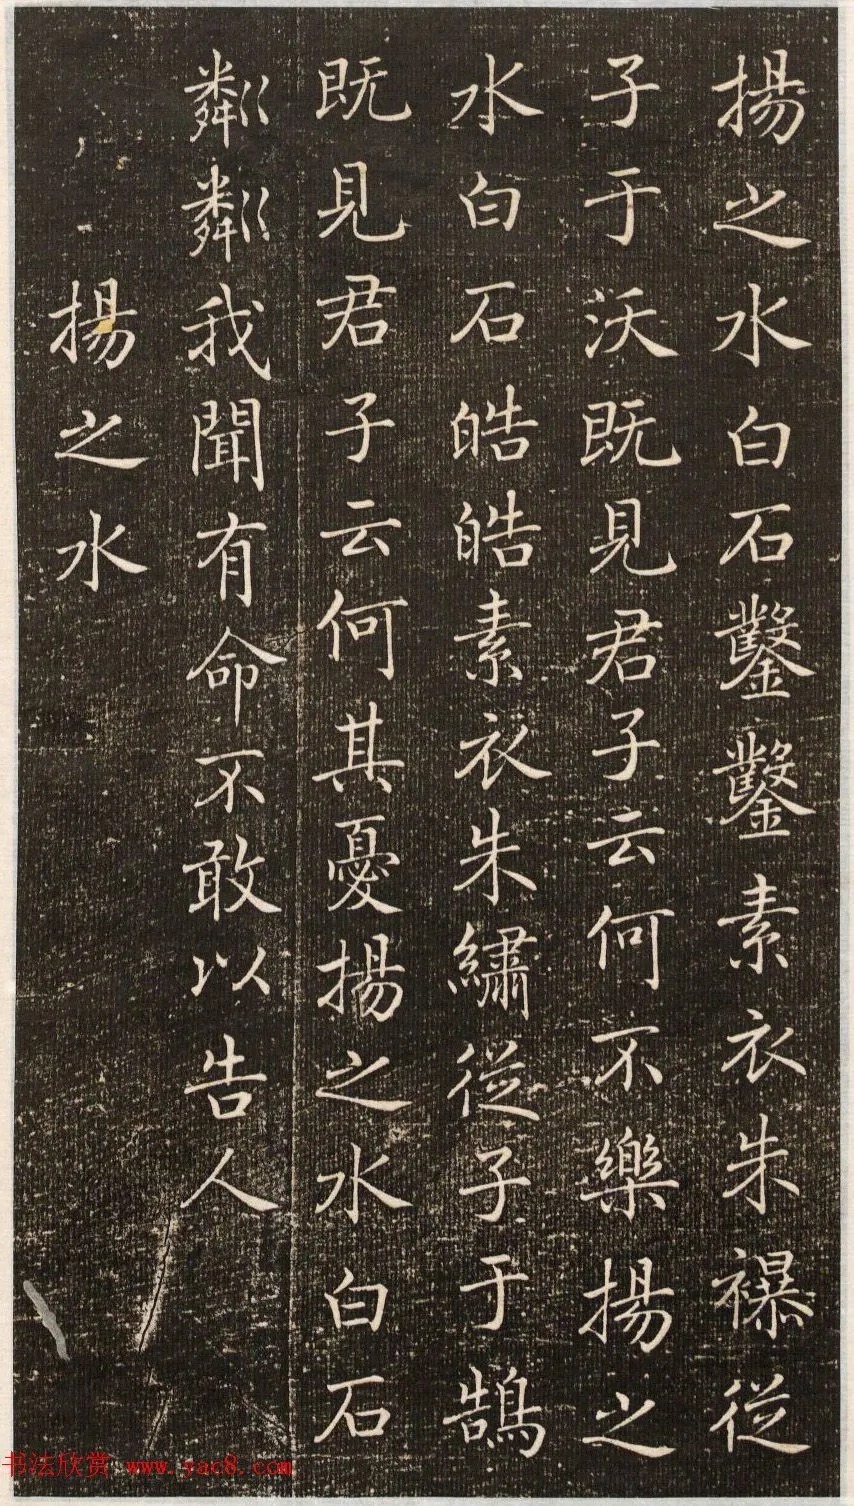 揚之水白石鑿鑿素衣朱襮從
子于沃既見君子云何不樂揚之
水白石皓皓素衣朱繡從子于鵠
既見君子云何其憂揚之水白石
粼粼我聞有命不敢以告人
揚之水
书法欣赏 www.yac8.com